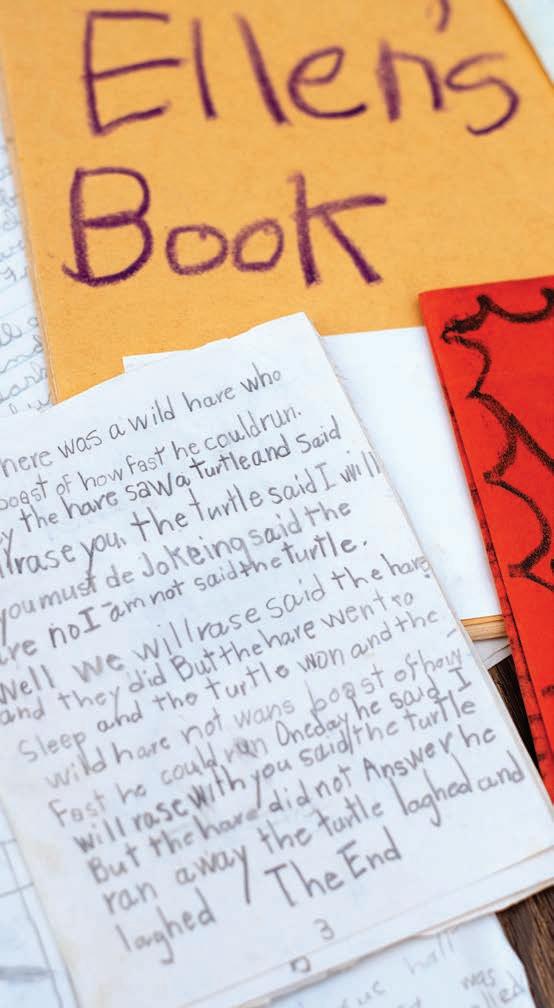 Ellen's
Book
here was a wild hare who
boast of how fast he could run.
y the hare saw a turtle and said
rase you, the turtle said I will
you must de Jokeing said the
are no I am not said the turtle.
Well we will rase said the hare
and they did But the hare went to
Sleep and the turtle won and the
wild hare not wans boast of how
Fast he could run One day he said I
will rase with you said the turtle
But the hare did not Answer he
ran away the turtle laghed and
laghed / The End
3